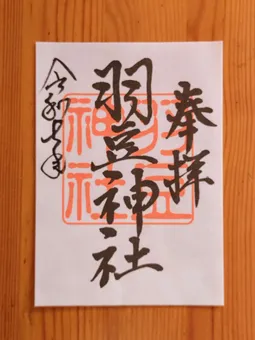 奉拝
羽豆神社
令和年
羽豆
神社